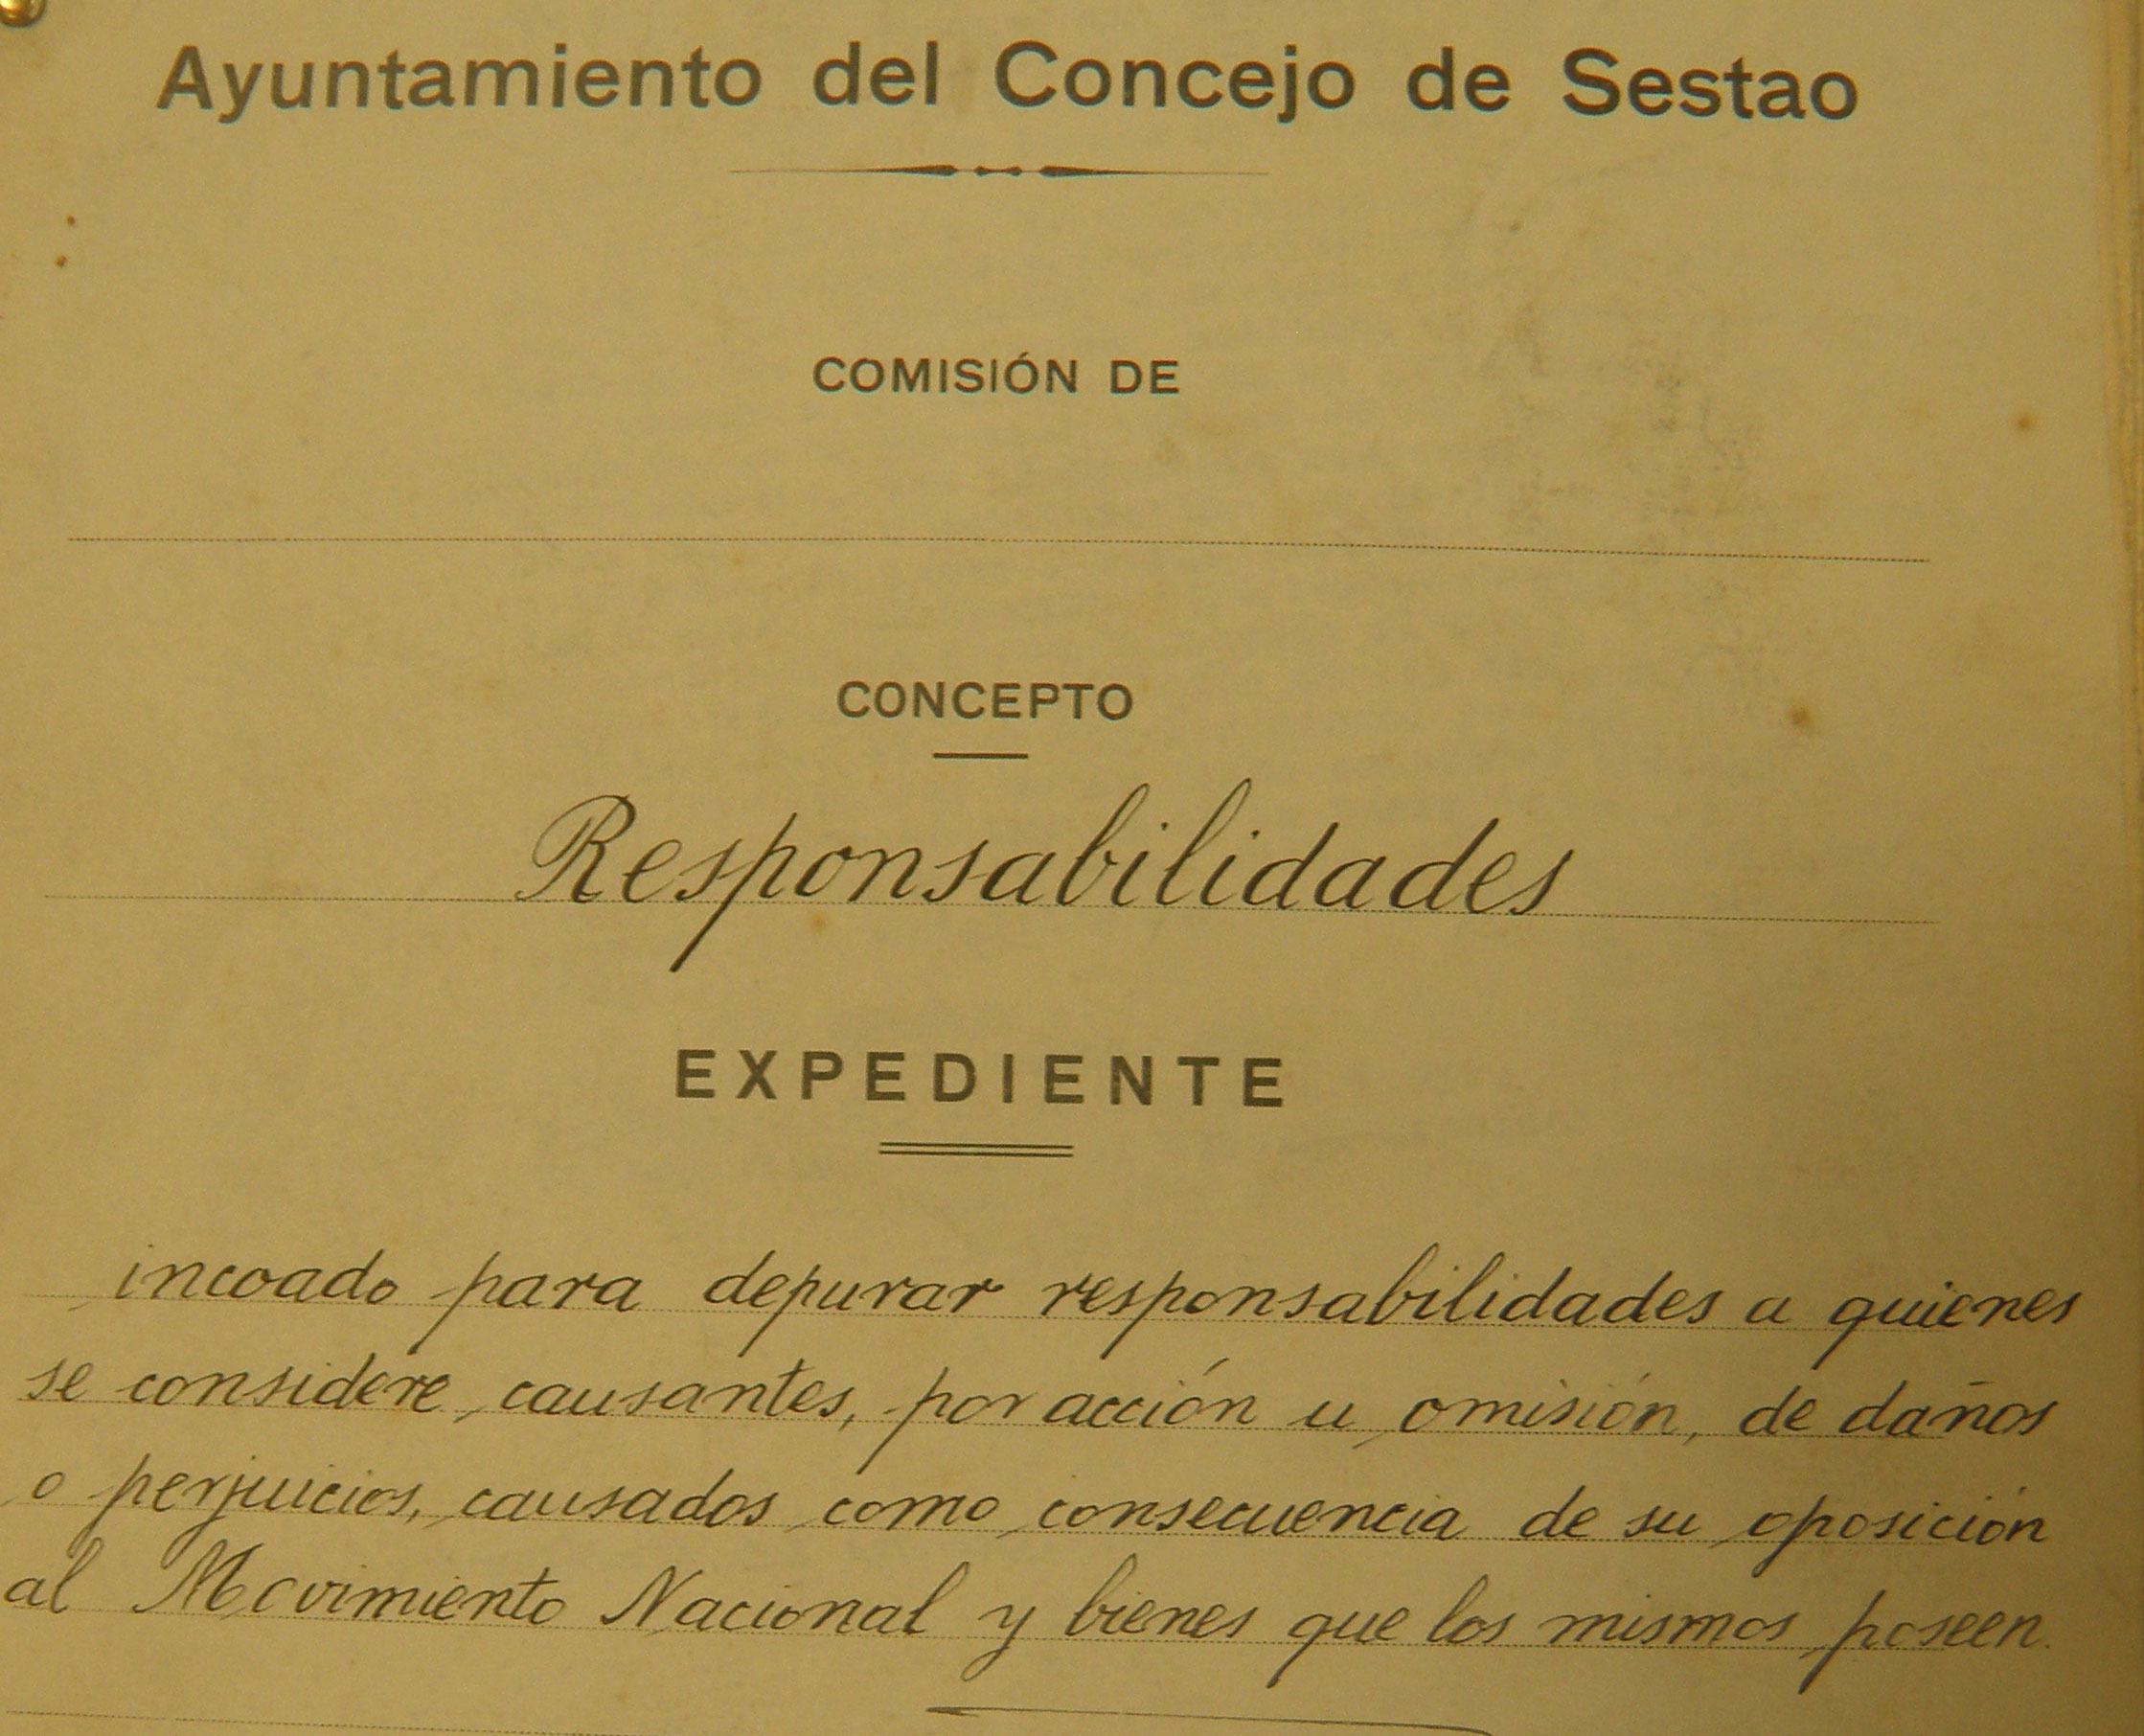 Ayuntamiento del Concejo de Sestao
COMISIÓN DE
CONCEPTO
Responsabilidades
EXPEDIENTE
incoado para depurar responsabilidades a quienes
se considere causantes, por acción u omisión, de daños
o perjuicios, causados como consecuencia de su oposición
al Movimiento Nacional y bienes que los mismos poseen.